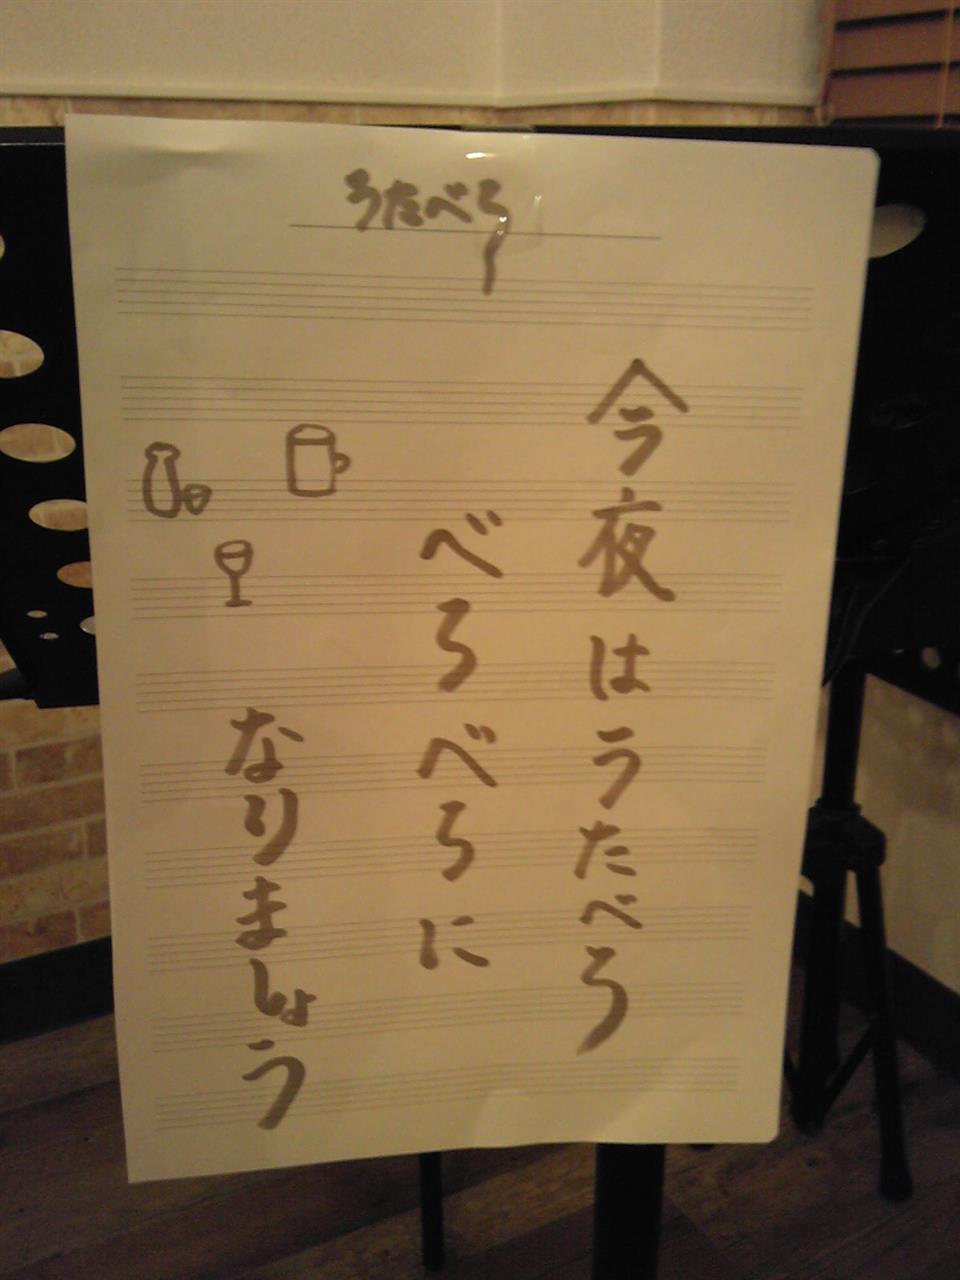 うたべろ
今夜はうたべろ
べろべろに
なりましょう